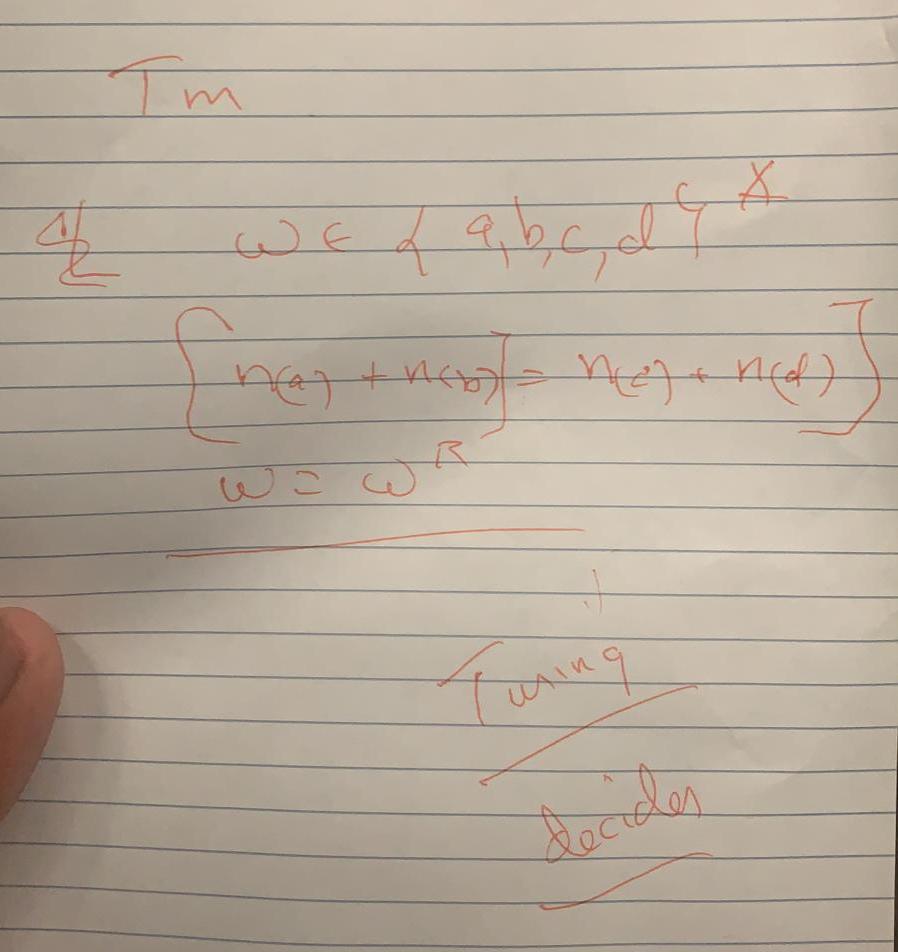 Tm
w ∈ { a, b, c, d }*
[ n(a) + n(b) ] = n(c) + n(d) ]
w = w^R
Turing
decides